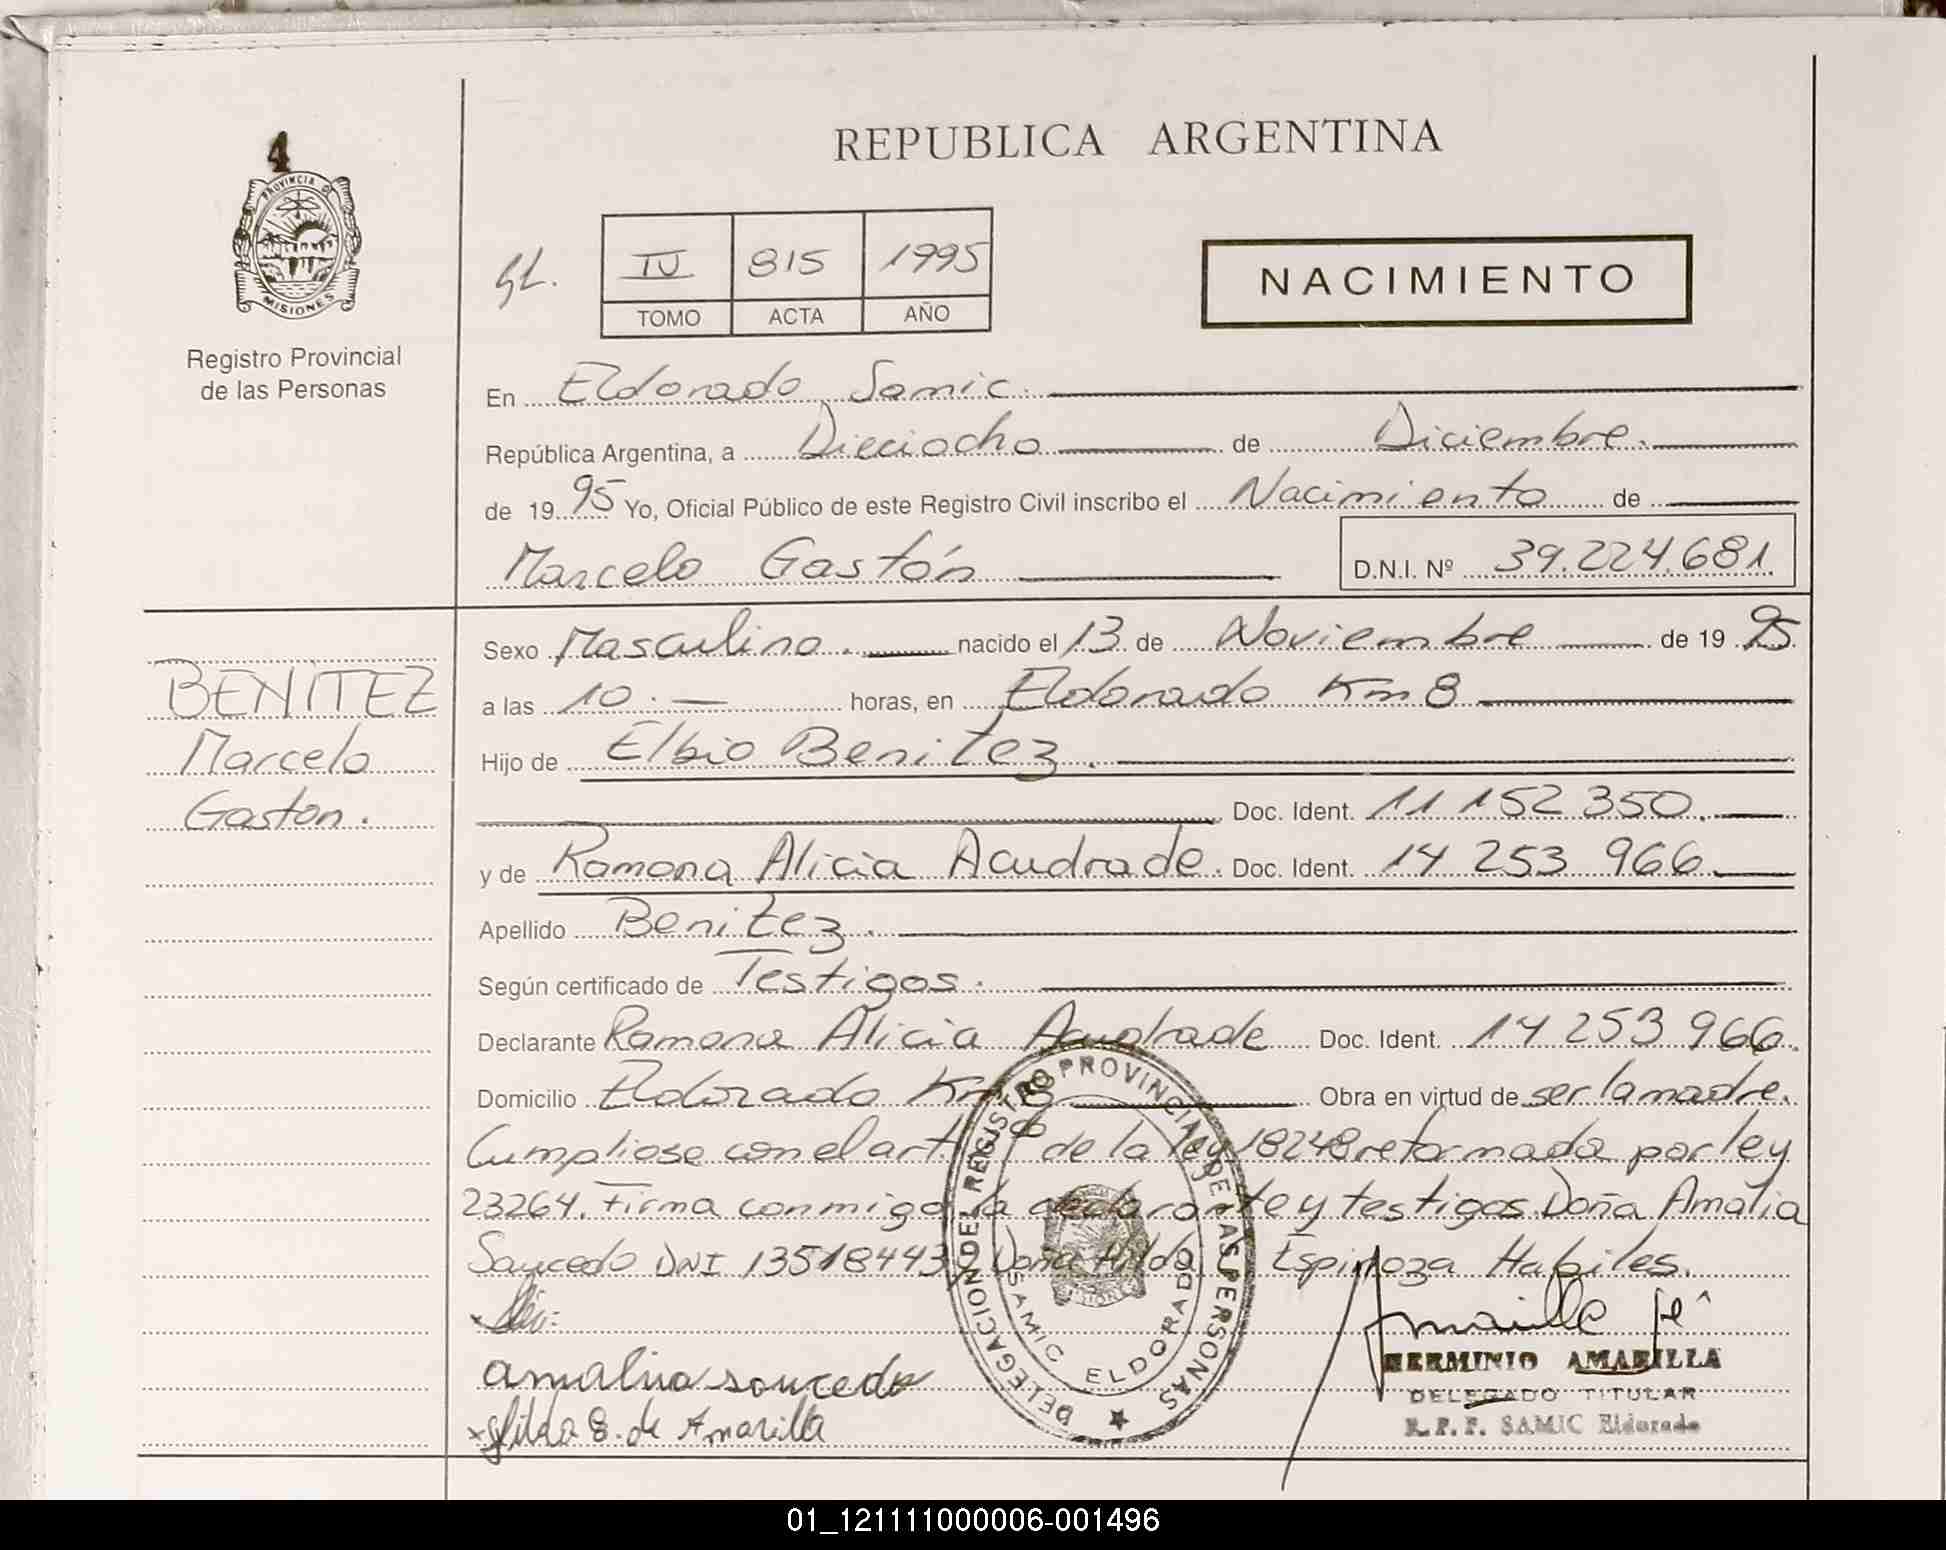 4
PROVINCIA D
MISIONES
Registro Provincial
de las Personas
REPUBLICA ARGENTINA
IV 815 1995
TOMO ACTA AÑO
NACIMIENTO
En Eldorado Samic.
República Argentina, a Dieciocho de Diciembre.
de 1995 Yo, Oficial Público de este Registro Civil inscribo el Nacimiento de
Marcelo Gastón D.N.I. Nº 39.224.681.
Sexo Masculino. nacido el 13 de Noviembre de 1995.
a las 10.— horas, en Eldorado Km 8
Hijo de Elbio Benitez.
Doc. Ident. 11 152 350.
y de Ramona Alicia Acudrade. Doc. Ident. 14 253 966.
Apellido Benitez.
Según certificado de Testigos.
Declarante Ramona Alicia Acudrade Doc. Ident. 14 253 966.
Domicilio Eldorado Km 8 Obra en virtud de ser la madre.
Cumpliose con el art. de la ley 18248 reformada por ley
23264. Firma conmigo la declarante y testigos Doña Amalia
Saucedo DNI 13518443 Doña Hilda Espinoza Habiles.
BENITEZ
Marcelo
Gaston.
amalia soucedo
x Hilda E. de Amarilla
DELEGACION DEL REGISTRO PROVINCIAL DE LAS PERSONAS
SAMIC ELDORADO
HERMINIO AMARILLA
DELEGADO TITULAR
R.P.P. SAMIC Eldorado
01_121111000006-001496